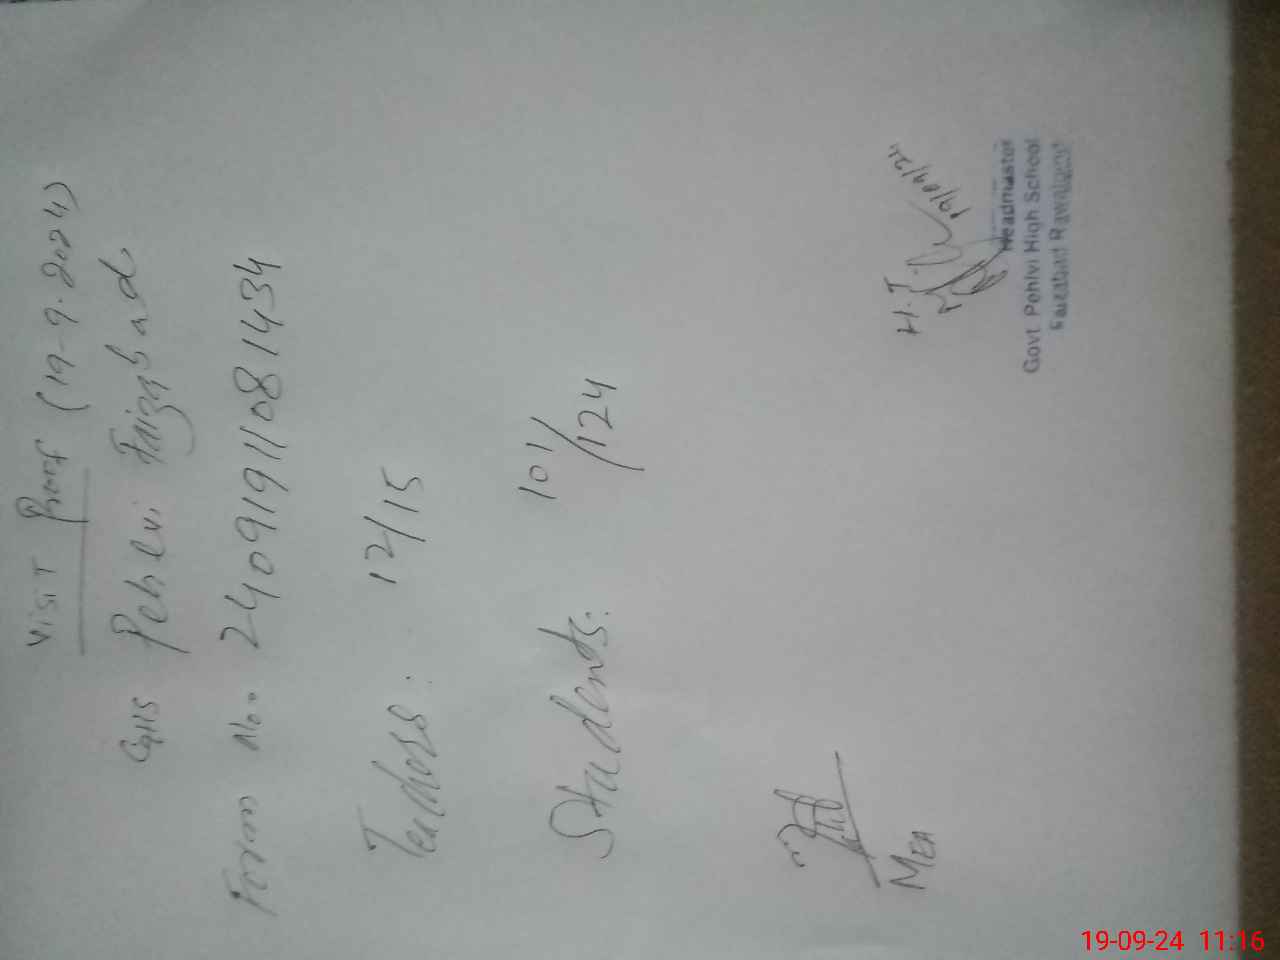 Visit Proof (19-9-2024)
GHS Pehlvi Faizabad
Form No. 2409191108 1434
Teachers: 12/15
Students: 101/124
MEA
H.T
19/09/24
Headmaster
Govt Pehlvi High School
Faizabad Rawalpindi
19-09-24 11:16